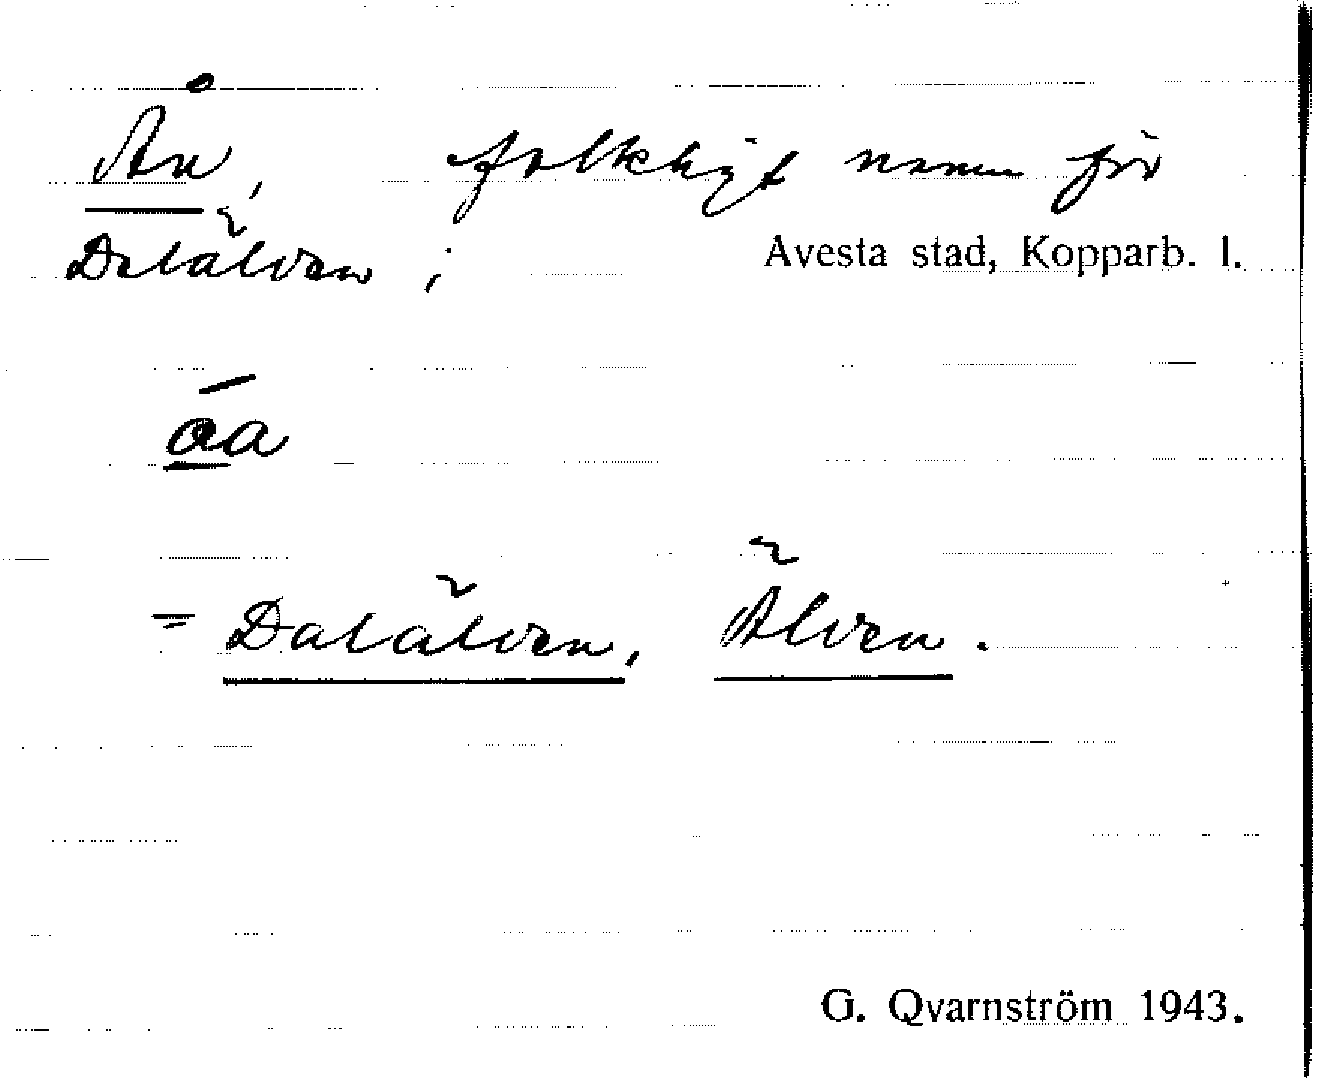 Ån, folkligt namn för
Dalälven; Avesta stad, Kopparb. l.
åa
= Dalälven, Älven.
G. Qvarnström 1943.